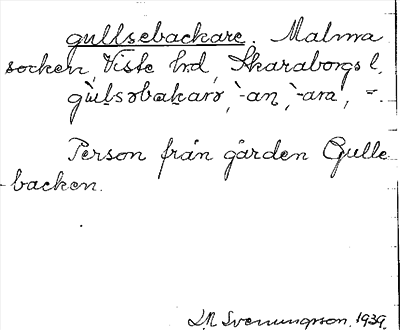 gullsebackare. Malma
socken, Viste hrd, Skaraborgs l.
gùlsəbakarə, -an, -ara, =.
Person från gården Gulle
backen.
Svenungson, 1939.